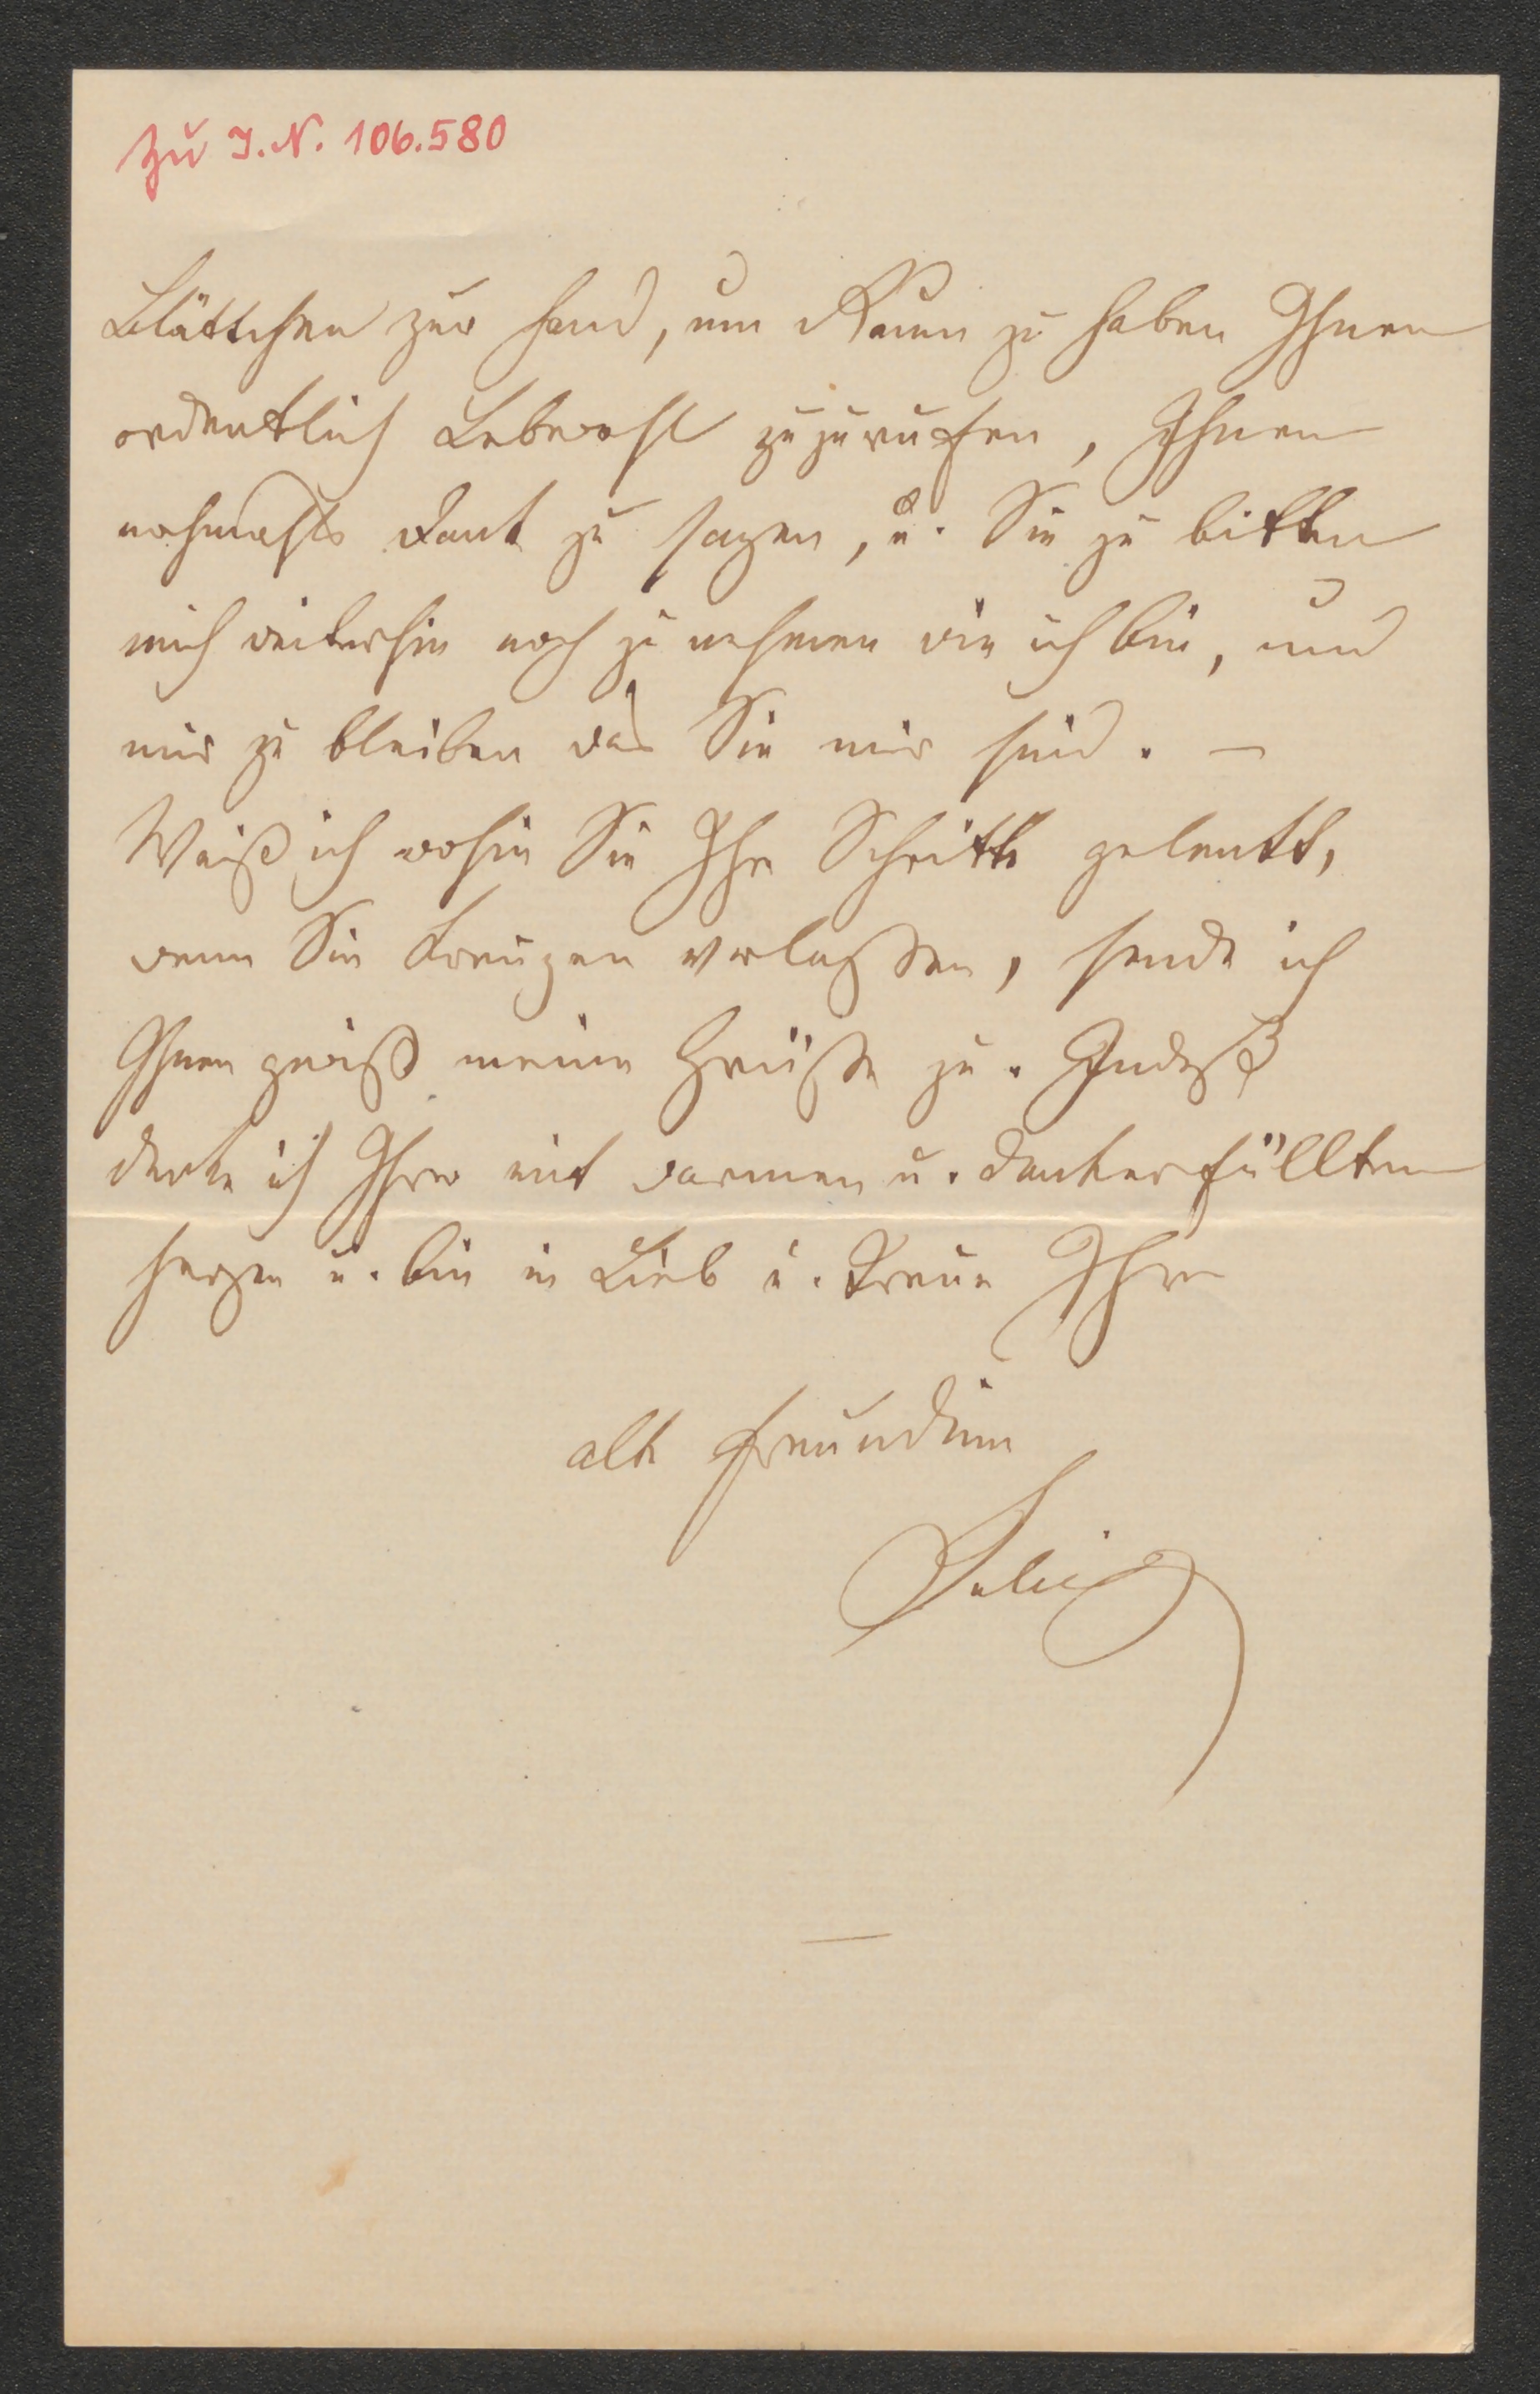 Zu I.N. 106.580
Blättchen zur Hand, um Raum zu haben Ihnen
ordentlich Lebewohl zuzurufen, Ihnen
nochmals Dank zu sagen, u. Sie zu bitten
mich weiterhin noch zu nehmen wie ich bin, und
mir zu bleiben was Sie mir sind. —
Weiß ich wohin Sie Ihre Schritte gelenkt,
wenn Sie Kreuzen verlassen, sende ich
Ihnen gewiß meine Grüße zu. Indeß
denke ich Ihrer mit warmen u. dankerfüllten
Herzen u. bin in Lieb u. Treue Ihre
alte Freundin